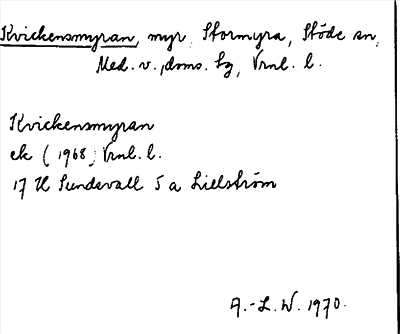 Kvickensmyran, myr, Stormyra, Stöde sn,
Med. v., doms. sg, Vrnl. l.
Kvickensmyran
ek (1968) Vrnl. l.
17 H Sundsvall 5 a Lillström
A.-L. W. 1970.